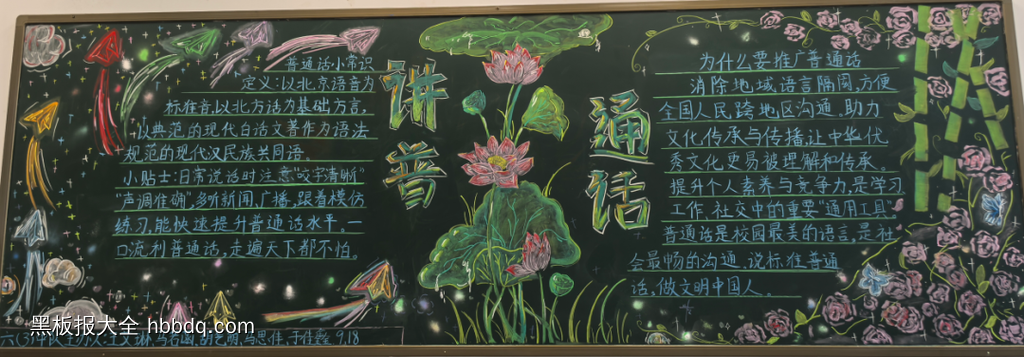 讲普通话
普通话小常识
定义:以北京语音为
标准音,以北方话为基础方言,
以典范的现代白话文著作为语法
规范的现代汉民族共同语。
小贴士:日常说话时注意“咬字清晰”
“声调准确”,多听新闻,广播,跟着模仿
练习,能快速提升普通话水平。一
口流利普通话,走遍天下都不怕。
为什么要推广普通话
消除地域语言隔阂,方便
全国人民跨地区沟通,助力
文化传承与传播,让中华优
秀文化更易被理解和传承。
提升个人素养与竞争力,是学习
工作,社交中的重要“通用工具”
普通话是校园最美的语言,是社
会最畅的沟通,说标准普通
话,做文明中国人。
黑板报大全 hbbdq.com
六(3)中队 9.18